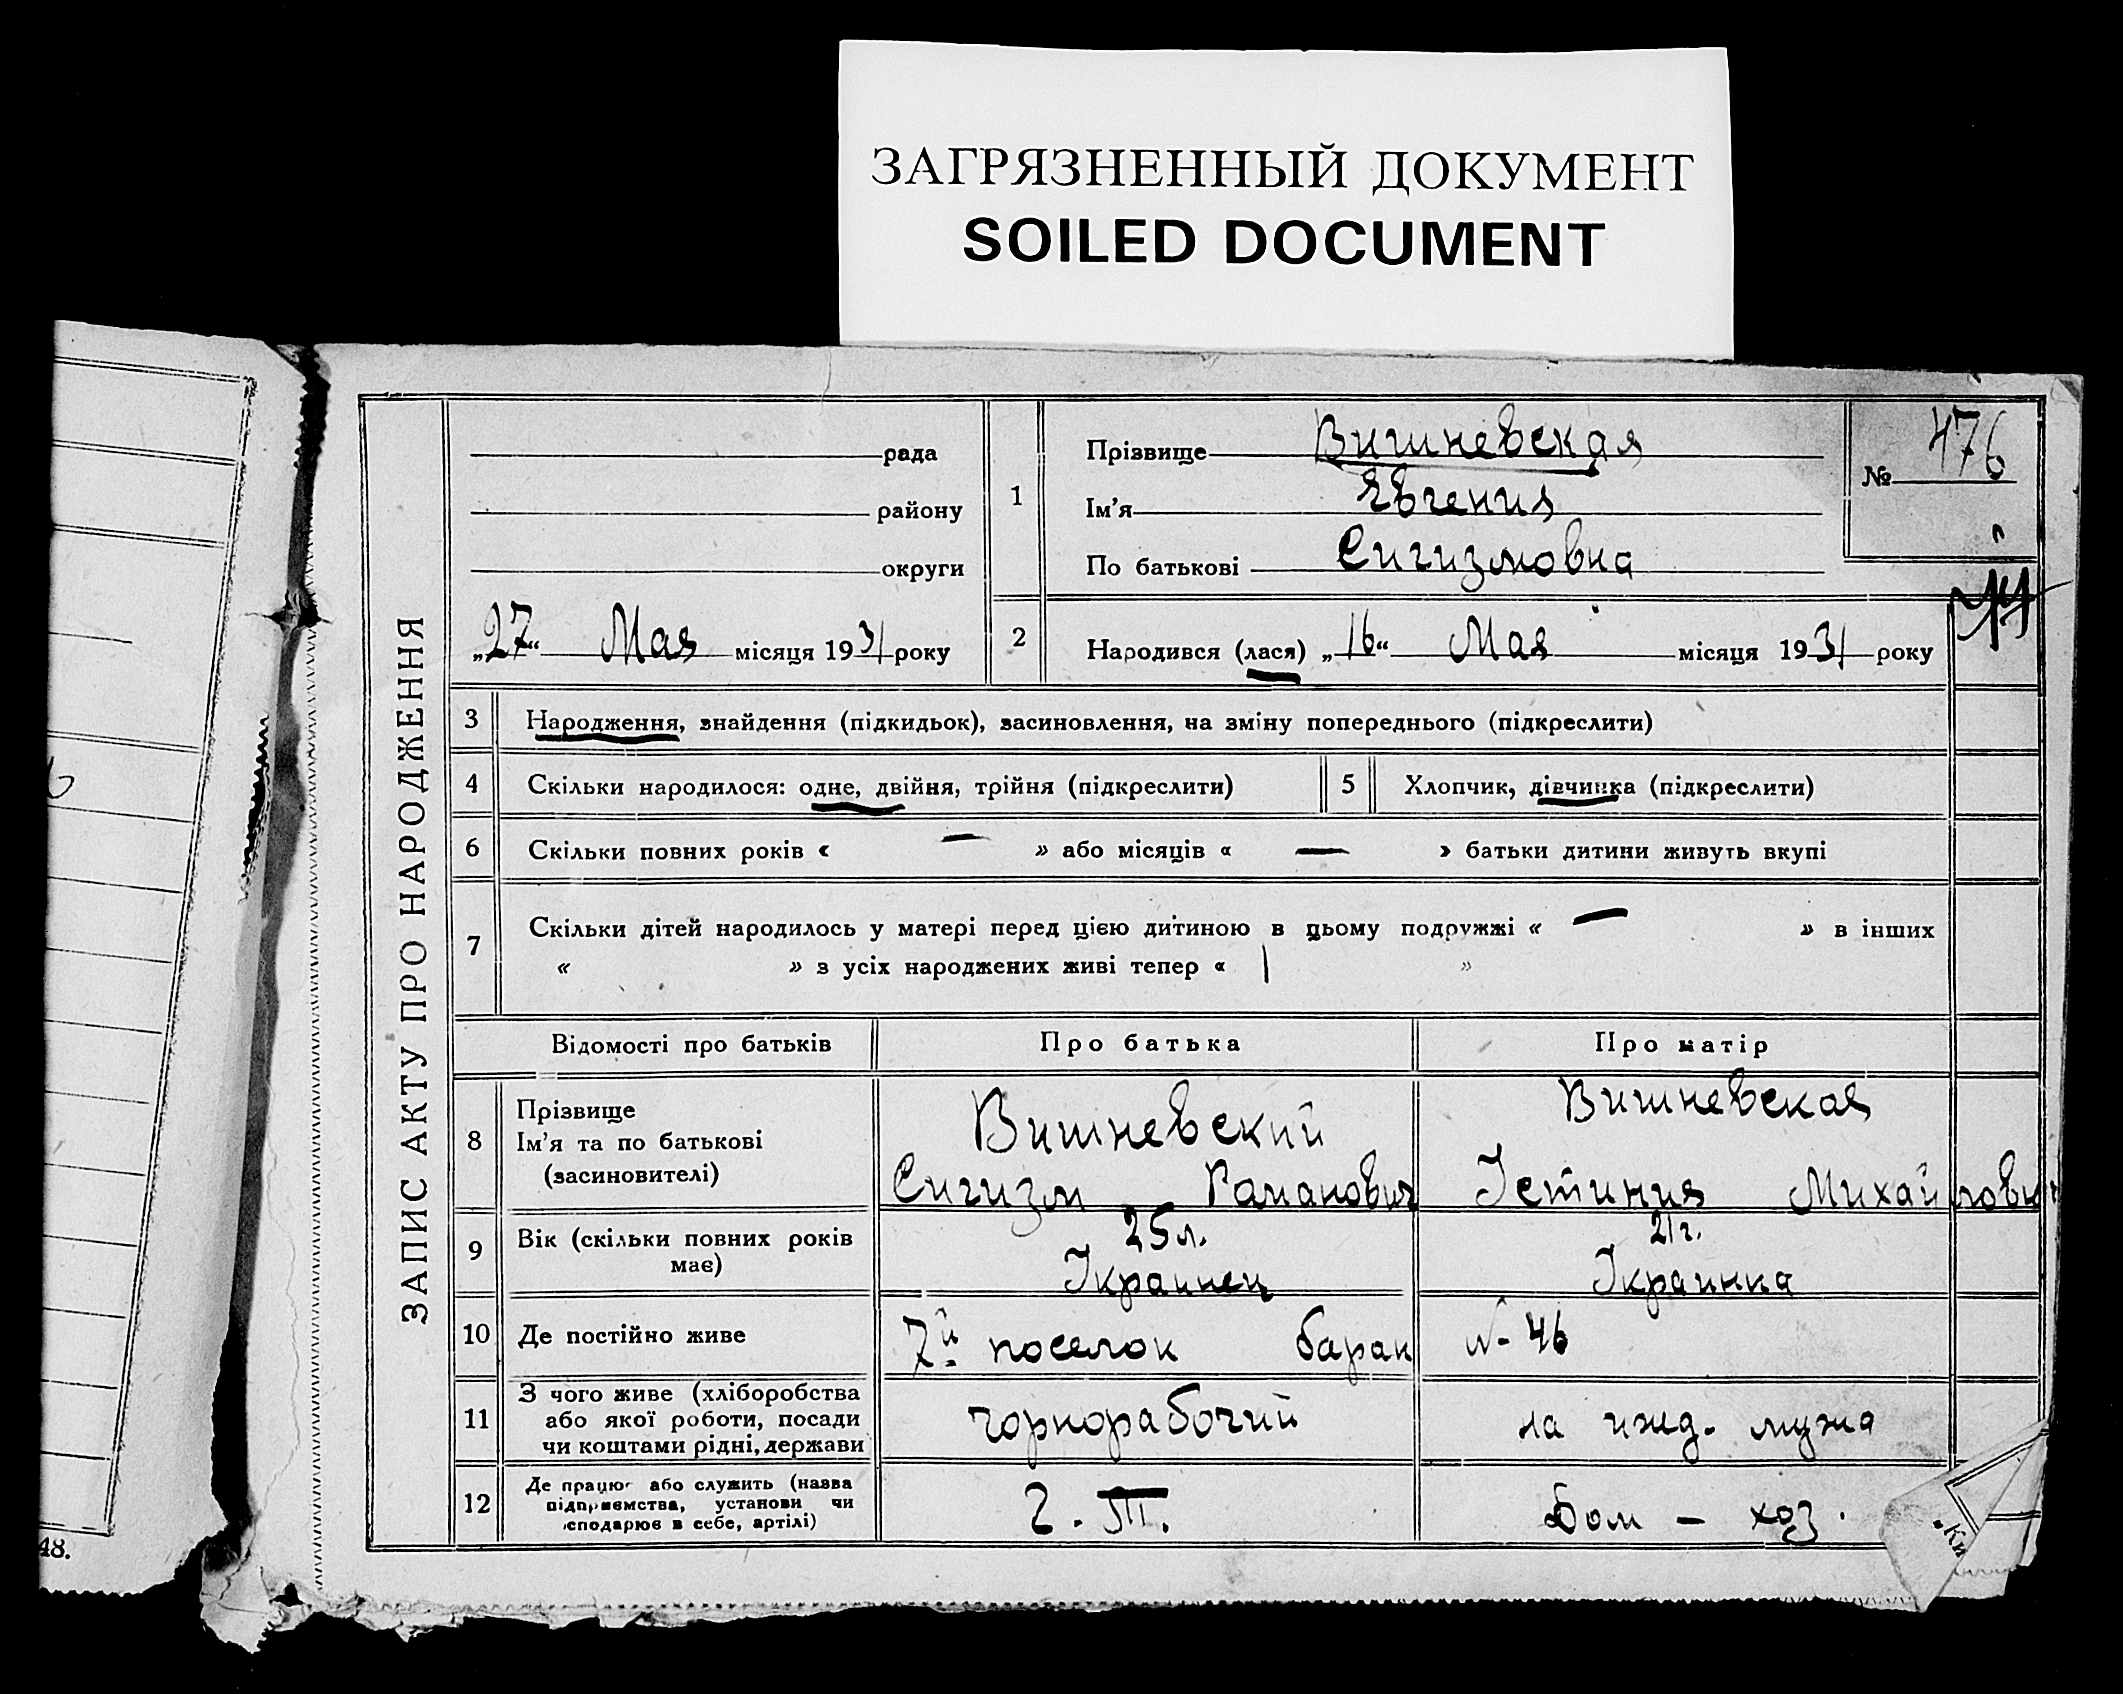 ЗАГРЯЗНЕННЫЙ ДОКУМЕНТ
SOILED DOCUMENT
48.
ЗАПИС АКТУ ПРО НАРОДЖЕННЯ
рада
району
округи
„27“ Мая місяця 1931 року
1
Прізвище Вишневская
Ім'я Евгения
По батькові Сигизмовна
№ 476
2 Народився (лася) „16“ Мая місяця 1931 року
3 Народження, знайдення (підкидьок), засиновлення, на зміну попереднього (підкреслити)
4 Скільки народилося: одне, двійня, трійня (підкреслити) 5 Хлопчик, дівчинка (підкреслити)
6 Скільки повних років « — » або місяців « — » батьки дитини живуть вкупі
7 Скільки дітей народилось у матері перед цією дитиною в цьому подружжі « — » в інших
« » з усіх народжених живі тепер « 1 »
Відомості про батьків Про батька Про матір
8 Прізвище
Ім'я та по батькові
(засиновителі)
Вишневский
Сигизм Романович
Вишневская
Устиния Михайловн
9 Вік (скільки повних років
має)
25 л.
Украинец
21 г.
Украинка
10 Де постійно живе 7й поселок барак № 46
11 З чого живе (хліборобства
або якої роботи, посади
чи коштами рідні, держави
чорнорабочий
на ижд. мужа
12 Де працює або служить (назва
підприємства, установи чи
сподарює в себе, артілі)
Дом — хоз.